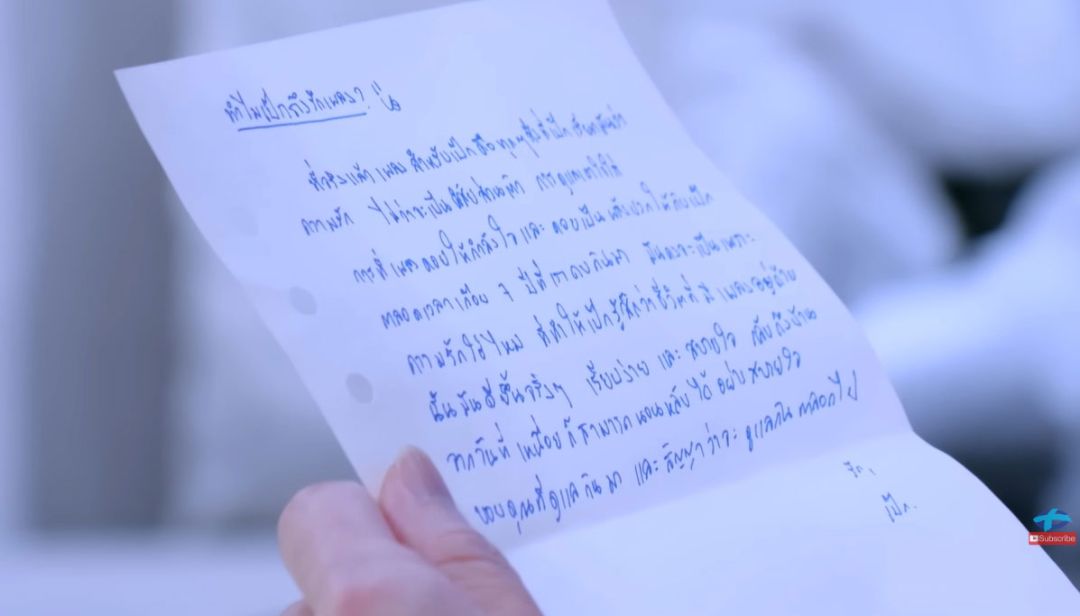 ทำไมเป๊กถึงรักเพลง?
ที่จริงแล้ว เพลง สำหรับเป๊ก คือ ทุกๆ สิ่งที่เป๊ก
ความรัก ไม่ว่าจะเป็น การดูแลเอาใจใส่
การที่เพลงคอยให้กำลังใจ และ คอยเป็นพลังบวกให้กับเป๊ก
ตลอดเวลาเกือบ 7 ปีที่เราคบกันมา มันคงจะเป็นเพราะ
ความรักใช่ไหม ที่ทำให้เป๊กรู้สึกว่าชีวิตที่มี เพลงอยู่ด้วย
นั้นมันดีขึ้นจริงๆ เรียบง่าย และ สบายใจ กลับถึงบ้าน
จากวันที่ เหนื่อย ก็สามารถนอนหลับได้ อย่างสบายใจ
ขอบคุณที่ดูแลกันมา และ สัญญาว่าจะ ดูแลกันตลอดไป
รัก,
เป๊ก.
Subscribe